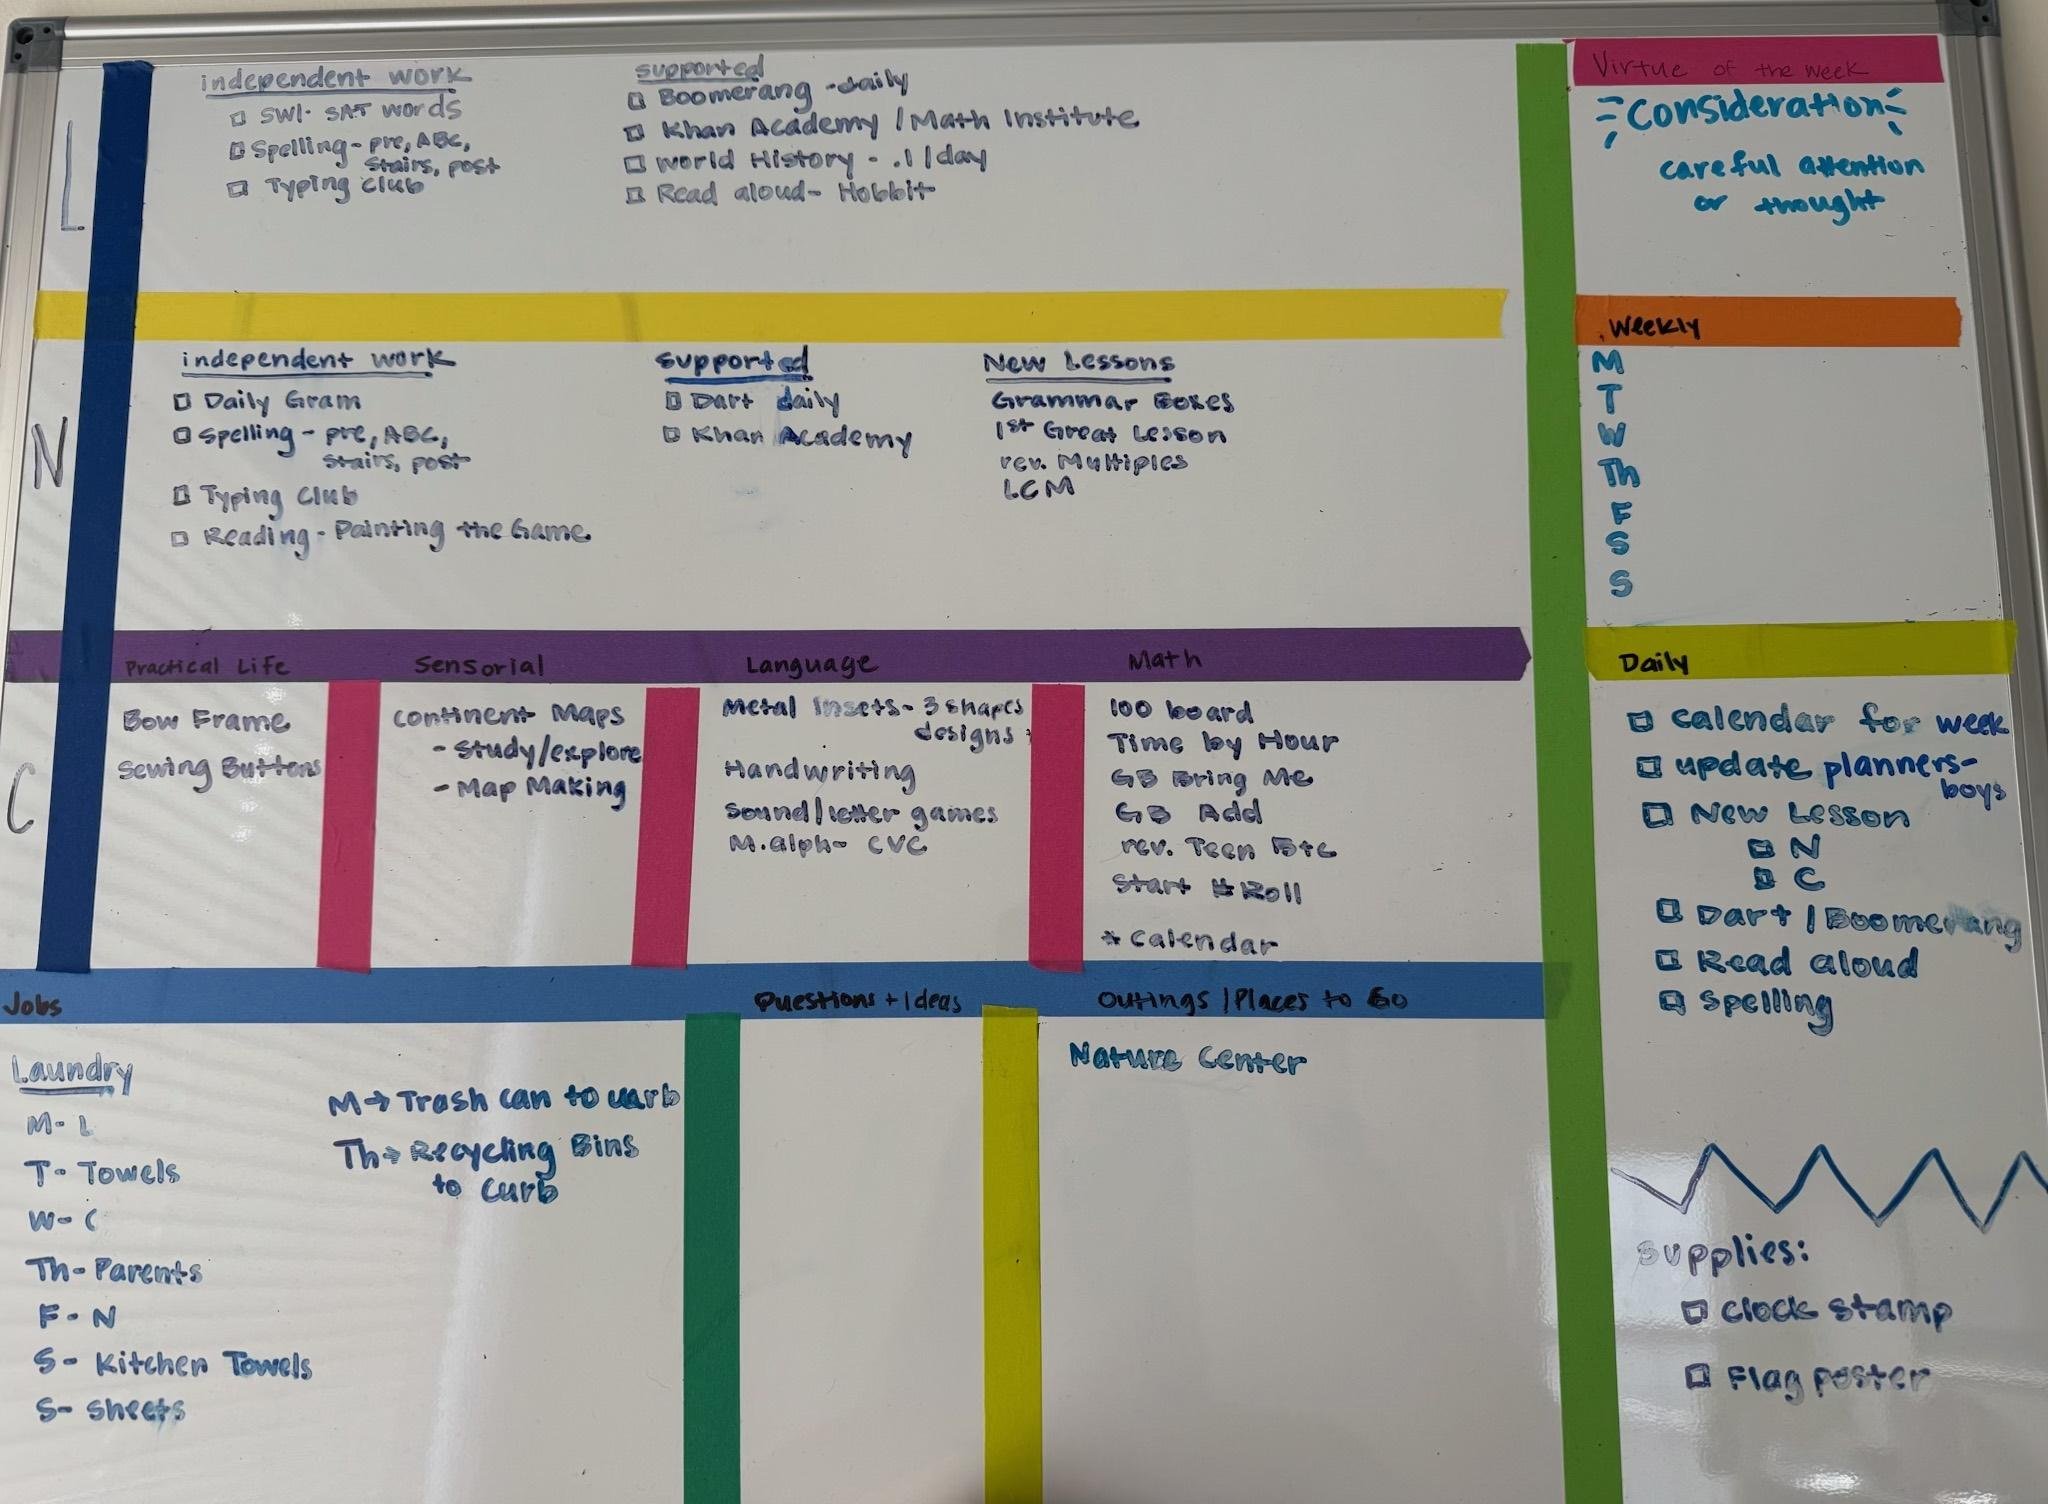 L
independent work
SWI. SAT words
Spelling - pre, ABC,
stairs, post
Typing Club
supported
Boomerang - daily
Khan Academy / Math Institute
World History - .1/day
Read aloud - Hobbit
N
independent work
Daily Gram
Spelling - pre, ABC,
stairs, post
Typing Club
Reading - Painting the Game
supported
Dart daily
Khan Academy
New Lessons
Grammar Boxes
1st Great Lesson
rev. Multiples
LCM
C
Practical Life
Bow Frame
Sewing Buttons
Sensorial
Continent Maps
- Study/explore
- Map Making
Language
Metal Insets - 3 shapes
designs
Handwriting
Sound/letter games
M. alph - CVC
Math
100 board
Time by Hour
GB Bring Me
GB Add
rev. Teen Etc
Start # Roll
* Calendar
Jobs
Laundry
M - L
T - Towels
W - C
Th - Parents
F - N
S - Kitchen Towels
S - Sheets
M → Trash can to curb
Th → Recycling Bins
to curb
Questions + Ideas
Outings / Places to Go
Nature Center
Virtue of the week
Consideration
careful attention
or thought
Weekly
M
T
W
Th
F
S
S
Daily
Calendar for week
update planners -
boys
New Lesson
N
C
Dart / Boomerang
Read aloud
Spelling
Supplies:
Clock stamp
Flag poster